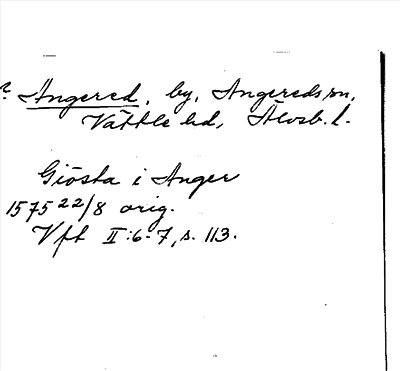 ? Angered, by, Angereds sn,
Vättle hd, Älvsb. l.
Giösta i Anger
1575 22/8 orig.
Vft II:6-7, s. 113.